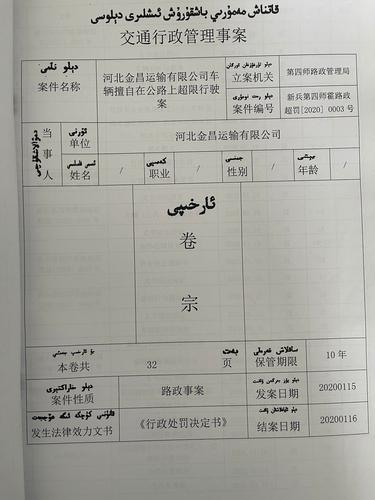 قاتناش مەمۇرىي باشقۇرۇش ئىشلىرى دېلوسى
交通行政管理事案
دېلو نامى
案件名称
河北金昌运输有限公司车辆擅自在公路上超限行驶案
立案机关
第四师路政管理局
案件编号
新兵第四师霍路政超罚[2020] 0003 号
当事人
ئورنى
单位
河北金昌运输有限公司
姓名
/
كەسپى
职业
/
جىنسى
性别
/
年龄
/
ئارخىپى
卷
宗
本卷共
32
بەت
页
ساقلاش مۇددىتى
保管期限
10 年
案件性质
路政事案
发案日期
20200115
发生法律效力文书
《行政处罚决定书》
结案日期
20200116